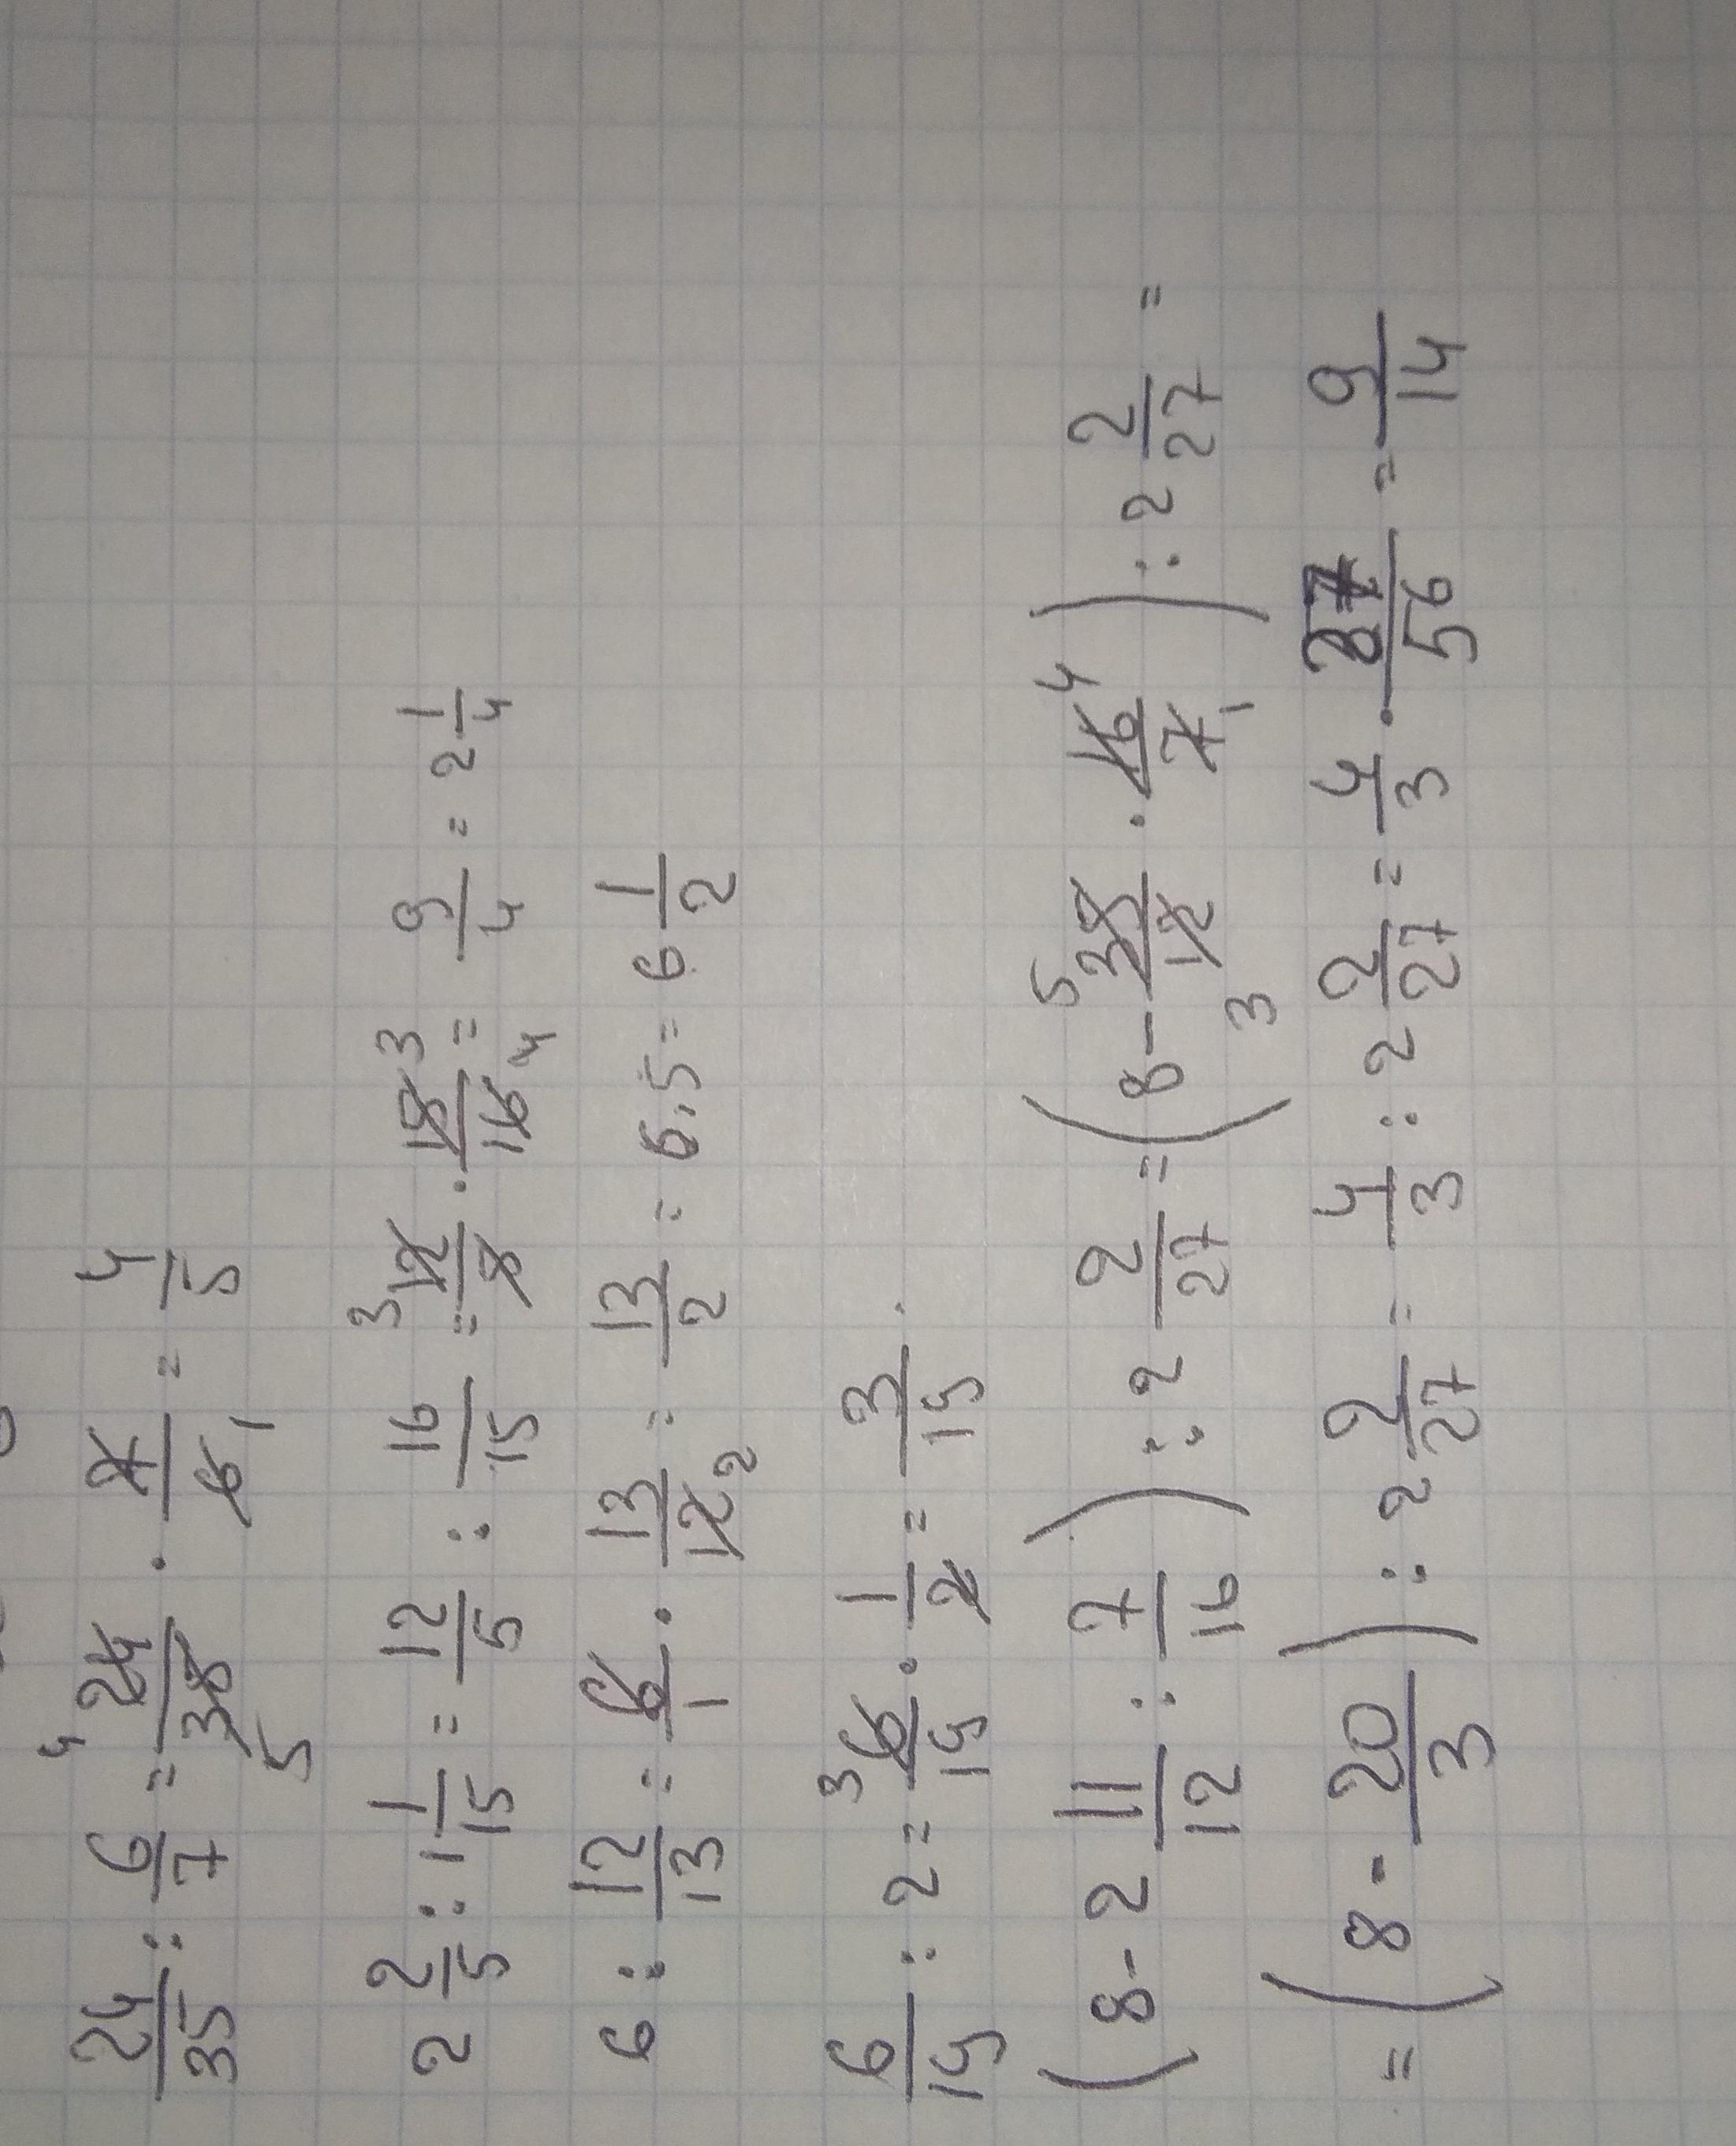 24/35 : 6/7 = 24/35 4 5 · 7/6 1 = 4/5
2 2/5 : 1 1/15 = 12/5 : 16/15 = 3 12/5 · 15/16 3 4 = 9/4 = 2 1/4
6 : 12/13 = 6/1 · 13/12 2 = 13/2 = 6,5 = 6 1/2
6/19 : 2 = 3 6/19 · 1/2 = 3/19
(8 - 2 11/12 : 7/16) : 2 2/27 = (8 - 5 35/12 3 · 16/7 4 1) : 2 2/27 =
= (8 - 20/3) : 2 2/27 = 4/3 : 2 2/27 = 4/3 · 27/56 = 9/14